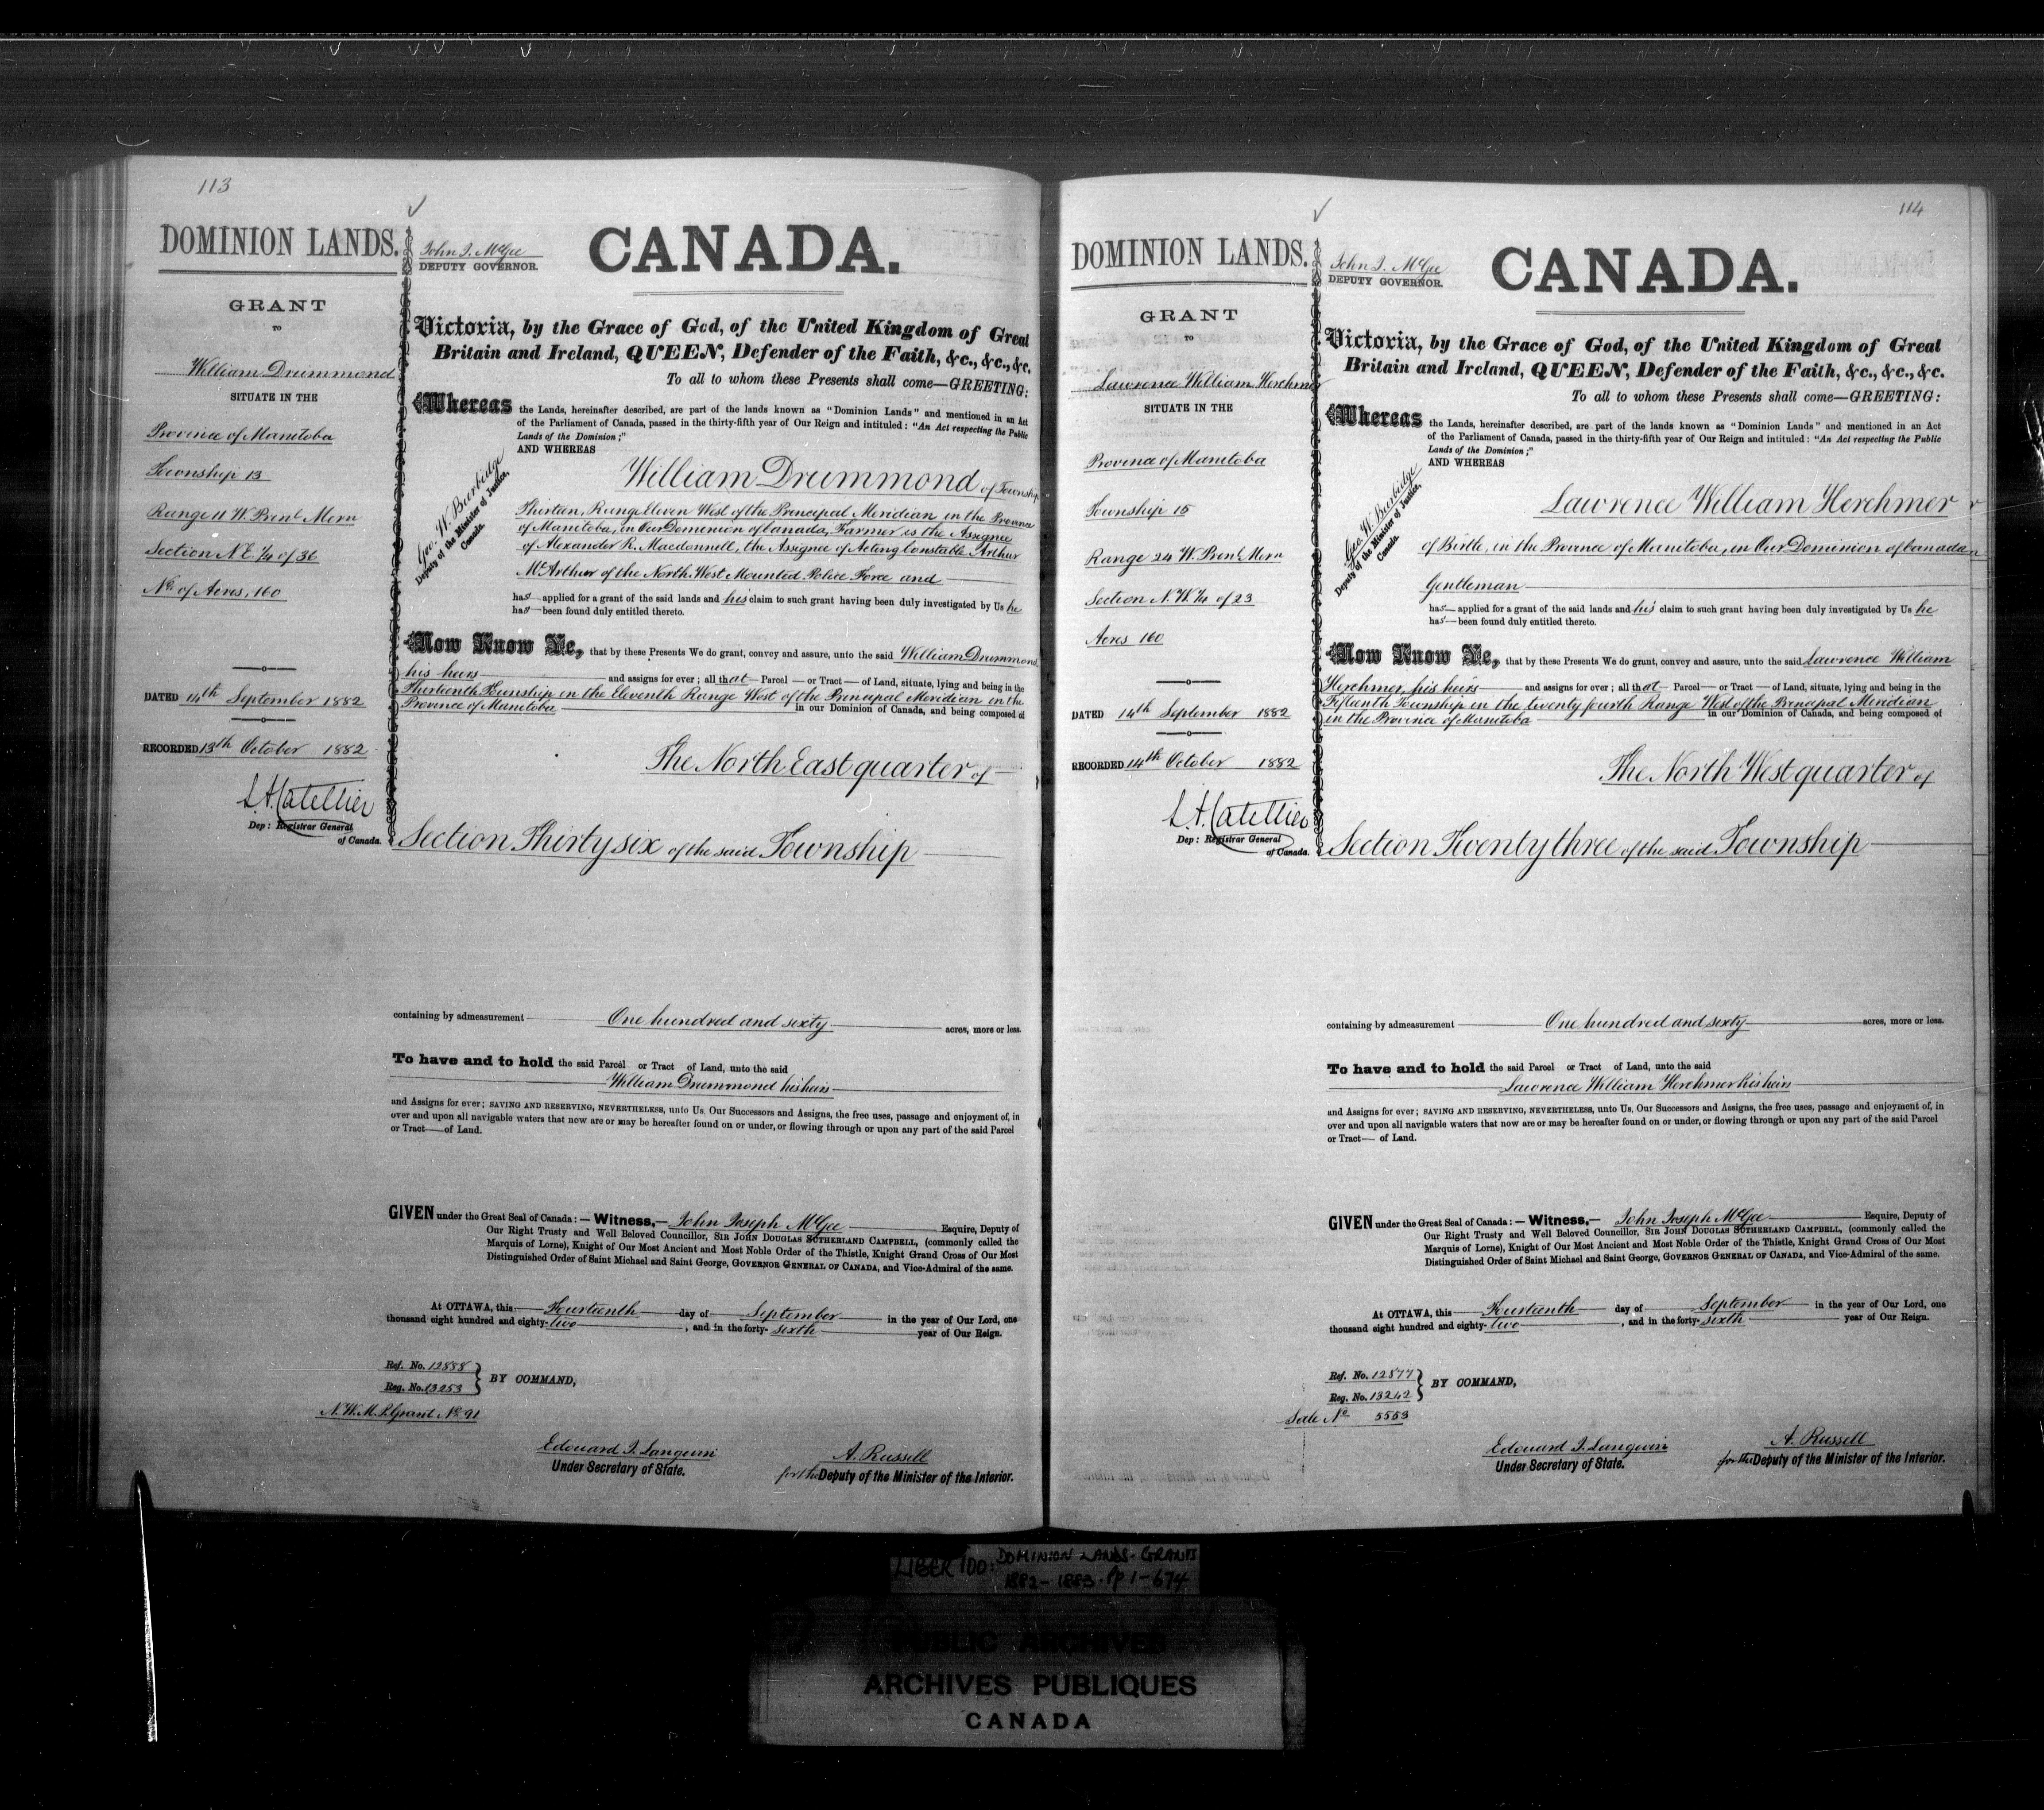 113
DOMINION LANDS.
GRANT
TO
William Drummond
SITUATE IN THE
Province of Manitoba
Township 13
Range 11 W. Prinl Mern
Section N.E. 1/4 of 36
No of Acres, 160
DATED 14th September 1882
RECORDED 13th October 1882
L.A. Catellier
Dep: Registrar General
of Canada.
John J. McGee
DEPUTY GOVERNOR.
CANADA.
Victoria, by the Grace of God, of the United Kingdom of Great
Britain and Ireland, QUEEN, Defender of the Faith, &c., &c., &c.
To all to whom these Presents shall come—GREETING:
Whereas the Lands, hereinafter described, are part of the lands known as "Dominion Lands" and mentioned in an Act
of the Parliament of Canada, passed in the thirty-fifth year of Our Reign and intituled: "An Act respecting the Public
Lands of the Dominion;"
AND WHEREAS
Geo. W. Burbidge
Deputy of the Minister of Justice,
Canada.
William Drummond of Township
Thirteen, Range Eleven West of the Principal Meridian in the Province
of Manitoba, in Our Dominion of Canada, Farmer is the Assignee
of Alexander R. Macdonnell, the Assignee of Acting Constable Arthur
McArthur of the North West Mounted Police Force and
has applied for a grant of the said lands and his claim to such grant having been duly investigated by Us he
has been found duly entitled thereto.
Now Know Ye, that by these Presents We do grant, convey and assure, unto the said William Drummond,
his heirs and assigns for ever; all that Parcel or Tract of Land, situate, lying and being in the
Thirteenth Township in the Eleventh Range West of the Principal Meridian in the
Province of Manitoba in our Dominion of Canada, and being composed of
The North East quarter of
Section Thirty six of the said Township
containing by admeasurement One hundred and sixty acres, more or less.
To have and to hold the said Parcel or Tract of Land, unto the said
William Drummond his heirs
and Assigns for ever; SAVING AND RESERVING, NEVERTHELESS, unto Us, Our Successors and Assigns, the free uses, passage and enjoyment of, in
over and upon all navigable waters that now are or may be hereafter found on or under, or flowing through or upon any part of the said Parcel
or Tract of Land.
GIVEN under the Great Seal of Canada:—Witness,—John Joseph McGee Esquire, Deputy of
Our Right Trusty and Well Beloved Councillor, SIR JOHN DOUGLAS SUTHERLAND CAMPBELL, (commonly called the
Marquis of Lorne), Knight of Our Most Ancient and Most Noble Order of the Thistle, Knight Grand Cross of Our Most
Distinguished Order of Saint Michael and Saint George, GOVERNOR GENERAL OF CANADA, and Vice-Admiral of the same.
At OTTAWA, this Fourteenth day of September in the year of Our Lord, one
thousand eight hundred and eighty-two, and in the forty-sixth year of Our Reign.
Ref. No. 12888
Reg. No. 13253
BY COMMAND,
N.W.M.P. Grant No 91
Edouard J. Langevin
Under Secretary of State.
A. Russell
for the Deputy of the Minister of the Interior.
114
DOMINION LANDS.
GRANT
TO
Lawrence William Herchmer
SITUATE IN THE
Province of Manitoba
Township 15
Range 24 W. Prinl Mern
Section N.W. 1/4 of 23
Acres 160
DATED 14th September 1882
RECORDED 14th October 1882
L.A. Catellier
Dep: Registrar General
of Canada.
John J. McGee
DEPUTY GOVERNOR.
CANADA.
Victoria, by the Grace of God, of the United Kingdom of Great
Britain and Ireland, QUEEN, Defender of the Faith, &c., &c., &c.
To all to whom these Presents shall come—GREETING:
Whereas the Lands, hereinafter described, are part of the lands known as "Dominion Lands" and mentioned in an Act
of the Parliament of Canada, passed in the thirty-fifth year of Our Reign and intituled: "An Act respecting the Public
Lands of the Dominion;"
AND WHEREAS
Geo. W. Burbidge
Deputy of the Minister of Justice,
Canada.
Lawrence William Herchmer
of Birtle, in the Province of Manitoba, in Our Dominion of Canada
Gentleman
has applied for a grant of the said lands and his claim to such grant having been duly investigated by Us he
has been found duly entitled thereto.
Now Know Ye, that by these Presents We do grant, convey and assure, unto the said Lawrence William
Herchmer, his heirs and assigns for ever; all that Parcel or Tract of Land, situate, lying and being in the
Fifteenth Township in the twenty fourth Range West of the Principal Meridian
in the Province of Manitoba in our Dominion of Canada, and being composed of
The North West quarter of
Section Twenty three of the said Township
containing by admeasurement One hundred and sixty acres, more or less.
To have and to hold the said Parcel or Tract of Land, unto the said
Lawrence William Herchmer his heirs
and Assigns for ever; SAVING AND RESERVING, NEVERTHELESS, unto Us, Our Successors and Assigns, the free uses, passage and enjoyment of, in
over and upon all navigable waters that now are or may be hereafter found on or under, or flowing through or upon any part of the said Parcel
or Tract of Land.
GIVEN under the Great Seal of Canada:—Witness,—John Joseph McGee Esquire, Deputy of
Our Right Trusty and Well Beloved Councillor, SIR JOHN DOUGLAS SUTHERLAND CAMPBELL, (commonly called the
Marquis of Lorne), Knight of Our Most Ancient and Most Noble Order of the Thistle, Knight Grand Cross of Our Most
Distinguished Order of Saint Michael and Saint George, GOVERNOR GENERAL OF CANADA, and Vice-Admiral of the same.
At OTTAWA, this Fourteenth day of September in the year of Our Lord, one
thousand eight hundred and eighty-two, and in the forty-sixth year of Our Reign.
Ref. No. 12877
Reg. No. 13242
BY COMMAND,
Sale No 5553
Edouard J. Langevin
Under Secretary of State.
A. Russell
for the Deputy of the Minister of the Interior.
LIBER 100: DOMINION LANDS-GRANTS
1882-1883. Pp 1-674
PUBLIC ARCHIVES
ARCHIVES PUBLIQUES
CANADA